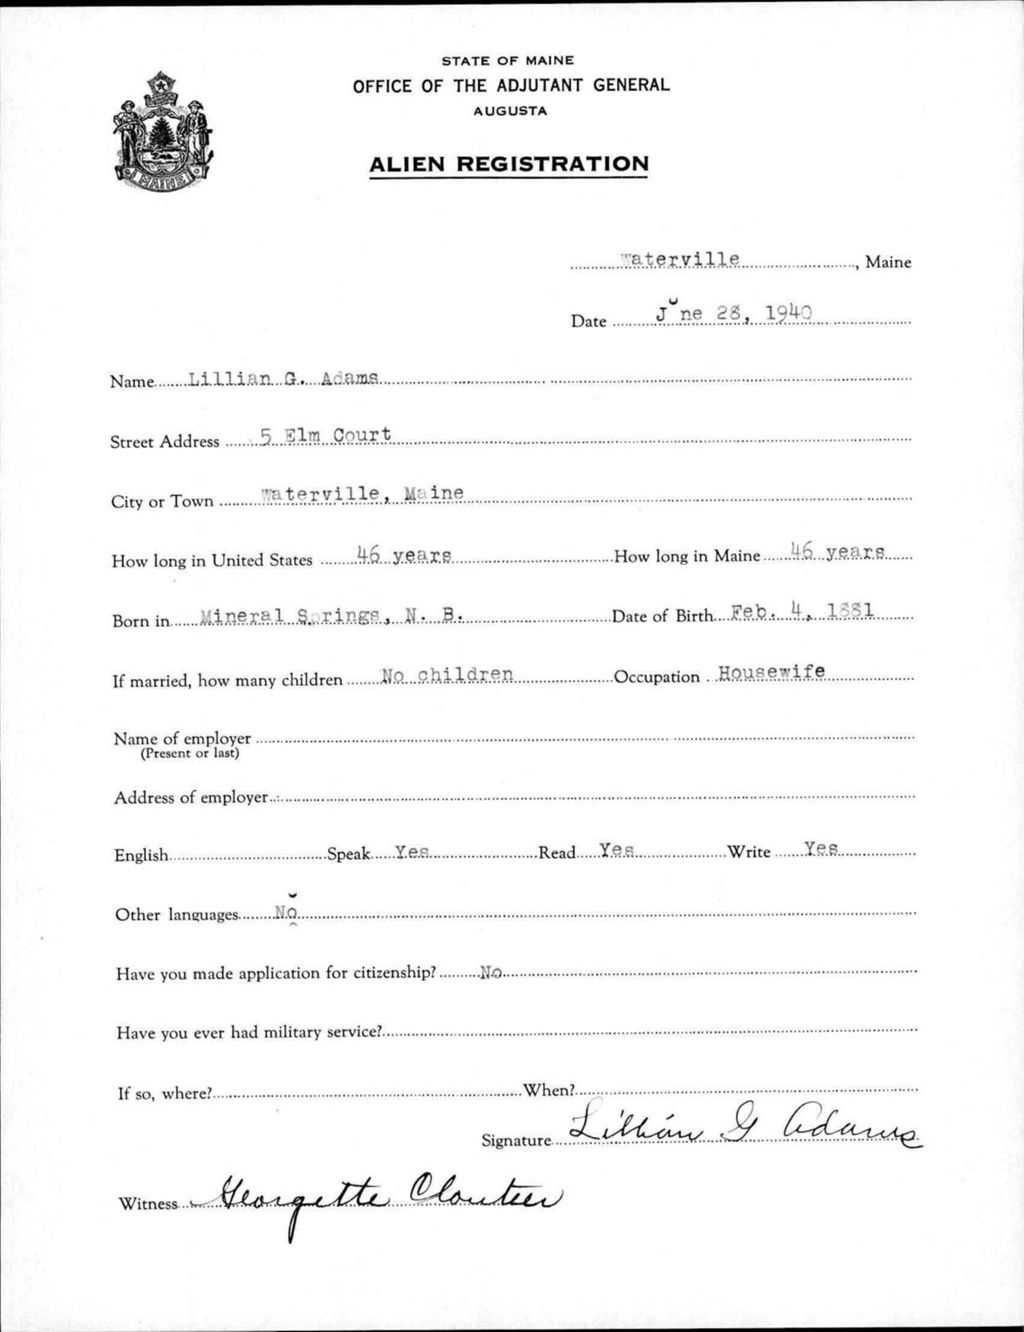 STATE OF MAINE
OFFICE OF THE ADJUTANT GENERAL
AUGUSTA
ALIEN REGISTRATION
MAINE
Waterville, Maine
Date June 28, 1940
Name Lillian G. Adams
Street Address 5 Elm Court
City or Town Waterville, Maine
How long in United States 46 years How long in Maine 46 years
Born in Mineral Springs, N. B. Date of Birth Feb. 4, 1881
If married, how many children No children Occupation Housewife
Name of employer
(Present or last)
Address of employer
English Speak Yes Read Yes Write Yes
Other languages No
Have you made application for citizenship? No
Have you ever had military service?
If so, where? When?
Signature Lillian G Adams
Witness Georgette Cloutier